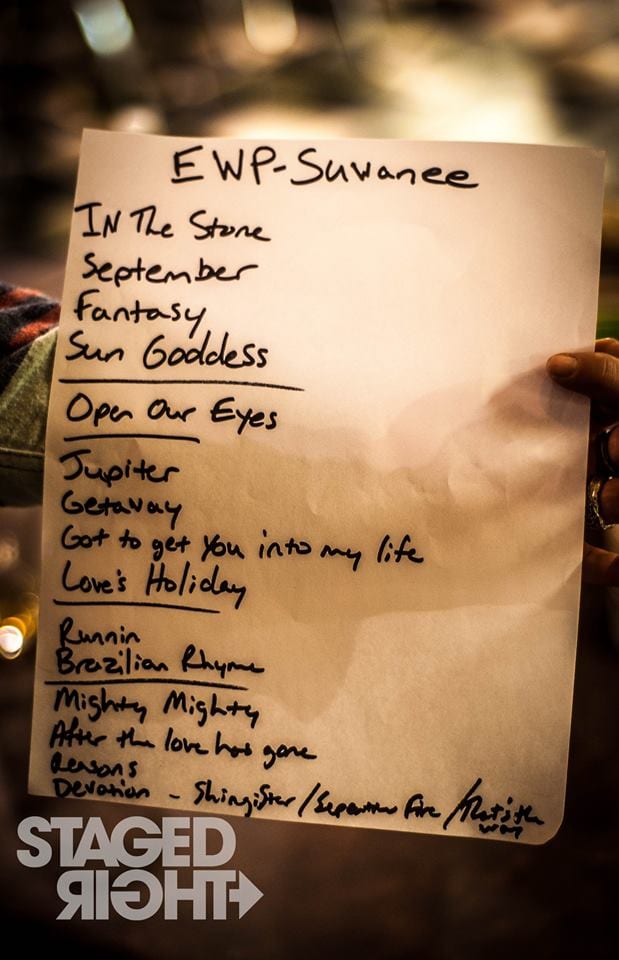 EWP-Suwanee
IN The Stone
September
Fantasy
Sun Goddess
Open Our Eyes
Jupiter
Getaway
Got to get you into my life
Love's Holiday
Runnin
Brazilian Rhyme
Mighty Mighty
After the love has gone
Reasons
Devotion - Shining Star / / That's the
way
STAGED
RIGHT